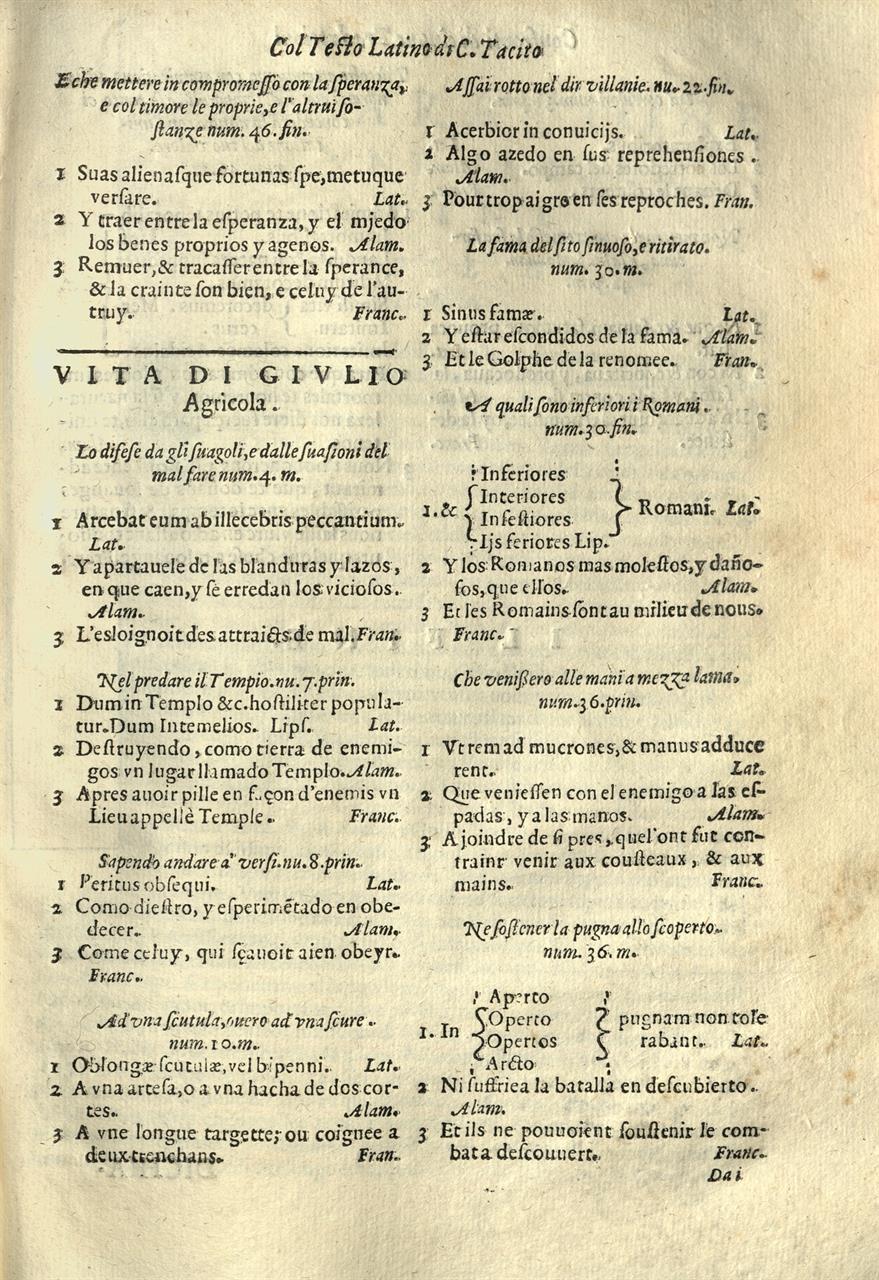 Col Testo Latino di C. Tacito
E che mettere in compromesso con la speranza,
e col timore le proprie, e l'altrui so-
stanze num. 46. fin.
1 Suas alienasque fortunas spe, metuque
versare. Lat.
2 Y traer entre la esperanza, y el mjedo
los benes proprios y agenos. Alam.
3 Remuer, & tracasser entre la sperance,
& la crainte son bien, e celuy de l'au-
truy. Franc.
VITA DI GIVLIO
Agricola.
Lo difese da gli suagoli, e dalle suasioni del
mal fare num. 4. m.
1 Arcebat eum ab illecebris peccantium.
Lat.
2 Y apartauele de las blanduras y lazos,
en que caen, y se erredan los viciosos.
Alam.
3 L'esloignoit des attraicts de mal. Fran.
Nel predare il Tempio. nu. 7. prin.
1 Dum in Templo &c. hostiliter popula-
tur. Dum Intemelios. Lips. Lat.
2 Destruyendo, como tierra de enemi-
gos vn lugar llamado Templo. Alam.
3 Apres auoir pille en façon d'enemis vn
Lieu appellè Temple. Franc.
Sapendo andare a' versi. nu. 8. prin.
1 Peritus obsequi. Lat.
2 Como diestro, y esperimẽtado en obe-
decer. Alam.
3 Come celuy, qui sçauoit aien obeyr.
Franc.
Ad vna scutula, ouero ad vna scure.
num. 10. m.
1 Oblongæ scutulæ, vel bipenni. Lat.
2 A vna artesa, o a vna hacha de dos cor-
tes. Alam.
3 A vne longue targette; ou coignee a
deux trenchans. Fran.
Assai rotto nel dir villanie. nu. 22. fin.
1 Acerbior in conuicijs. Lat.
2 Algo azedo en sus reprehensiones.
Alam.
3 Pour trop aigre en ses reproches. Fran.
La fama del sito sinuoso, e ritirato.
num. 30. m.
1 Sinus famæ. Lat.
2 Y estar escondidos de la fama. Alam.
3 Et le Golphe de la renomee. Fran.
A quali sono inferiori i Romani.
num. 30. fin.
Inferiores
Interiores
1. & Infestiores Romani. Lat.
Ijs feriores Lip.
2 Y los Romanos mas molestos, y daño-
sos, que ellos. Alam.
3 Et les Romains sont au milieu de nous.
Franc.
Che venißero alle mani a mezza lama.
num. 36. prin.
1 Vt rem ad mucrones, & manus adduce
rent. Lat.
2 Que veniessen con el enemigo a las es-
padas, y a las manos. Alam.
3 A joindre de si pres, quel'ont fut con-
traint venir aux cousteaux, & aux
mains. Franc.
Ne sostener la pugna allo scoperto.
num. 36. m.
Aperto
1. In Operto pugnam non tole
Opertos rabant. Lat.
Arcto
2 Ni suffriea la batalla en descubierto.
Alam.
3 Et ils ne pouuoient soustenir le com-
bat a descouuert. Franc.
Da i